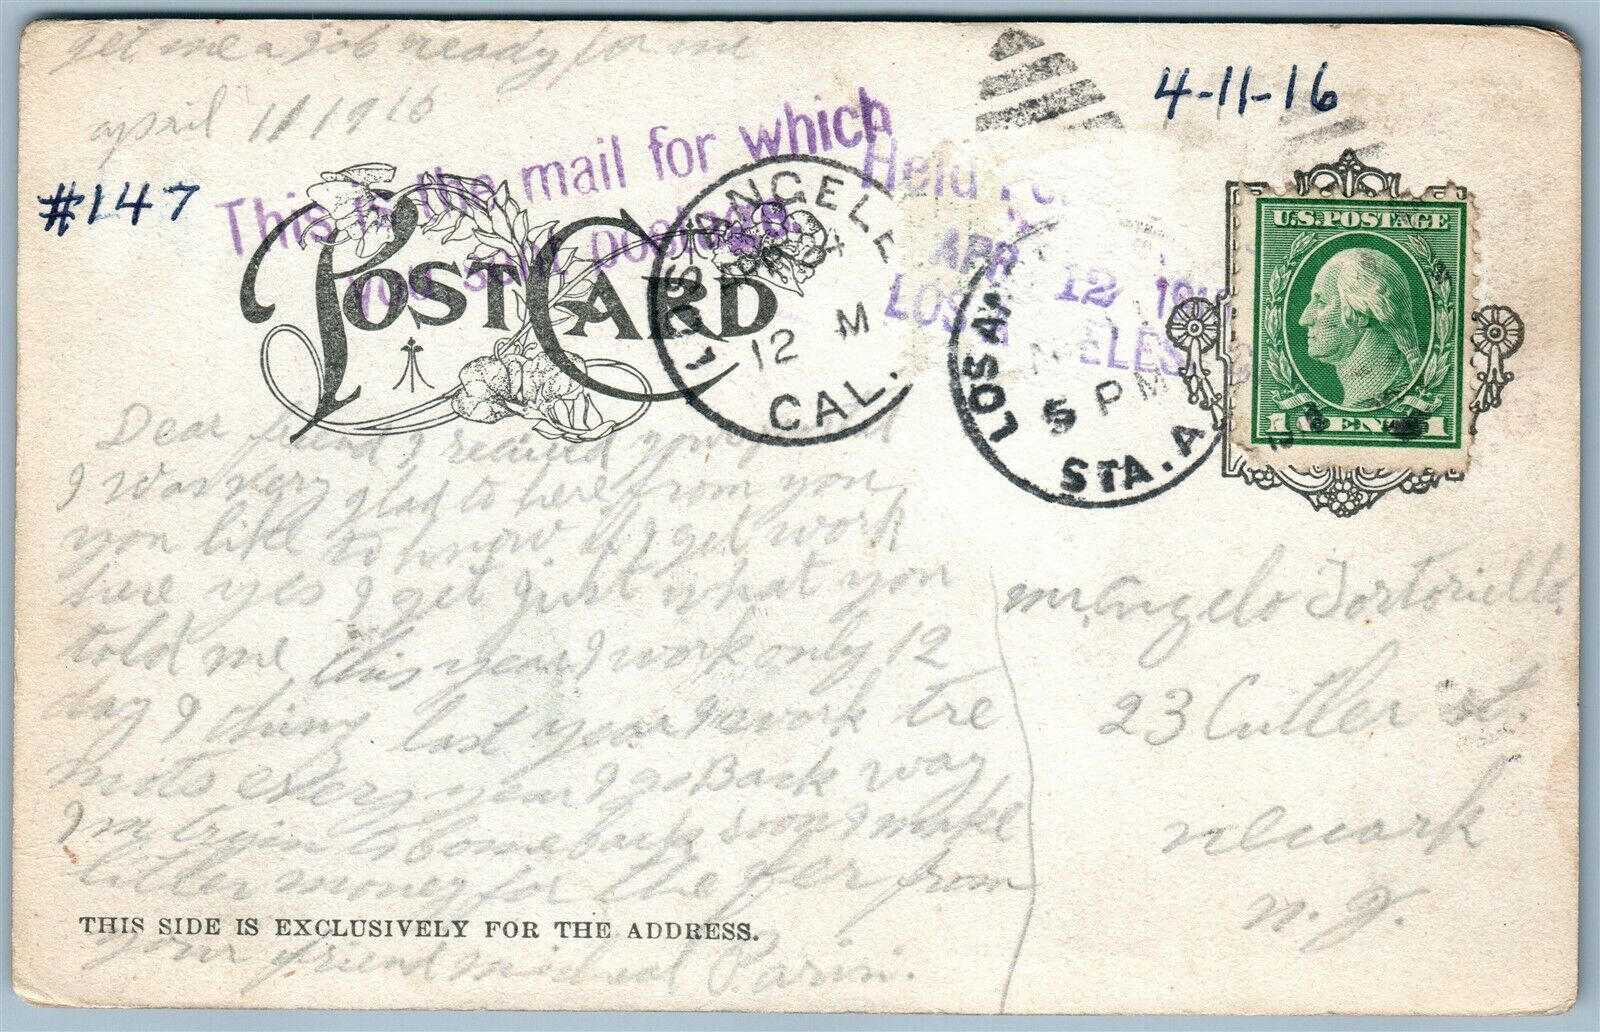 get me a job ready for me
april 11 1916
4-11-16
#147
This is the mail for which
you sent postage.
Held
APR 12 191
LOS ANGELES,
POST CARD
LOS ANGELES
APR 24
12 M
CAL.
LOS AN
5 PM
STA. A
U.S. POSTAGE
1 CENT 1
Dear friend I recived your card
I was very glad to here from you
you like to know if I get work
here yes I get just what you
told me this year I work only 12
day I thing last year I work tre
mots every year I go Back way
I'm tryin to come back soon I make
litter money for the fer from
THIS SIDE IS EXCLUSIVELY FOR THE ADDRESS.
your friend micheal Parisi.
mr. Angelo Tortoriello.
23 Cutler st.
newark
n. J.